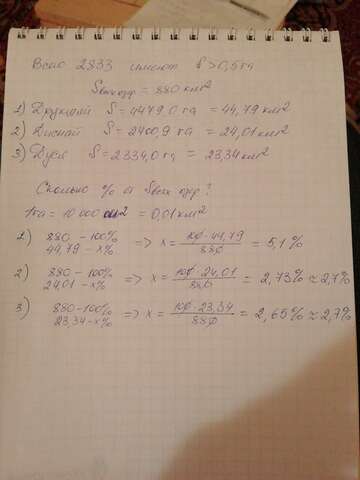 Всего 2833 имеют S > 0,5 га
Sвсех озёр = 880 км²
1) Друкшяй S = 4479,0 га = 44,79 км²
2) Диснай S = 2400,9 га = 24,01 км²
3) Дуся S = 2334,0 га = 23,34 км²
Сколько % от Sвсех озёр?
1 га = 10 000 м² = 0,01 км²
1) 880 - 100%
44,79 - x% => x = 100·44,79/880 = 5,1%
2) 880 - 100%
24,01 - x% => x = 100·24,01/880 = 2,73% ≈ 2,7%
3) 880 - 100%
23,34 - x% => x = 100·23,34/880 = 2,65% ≈ 2,7%